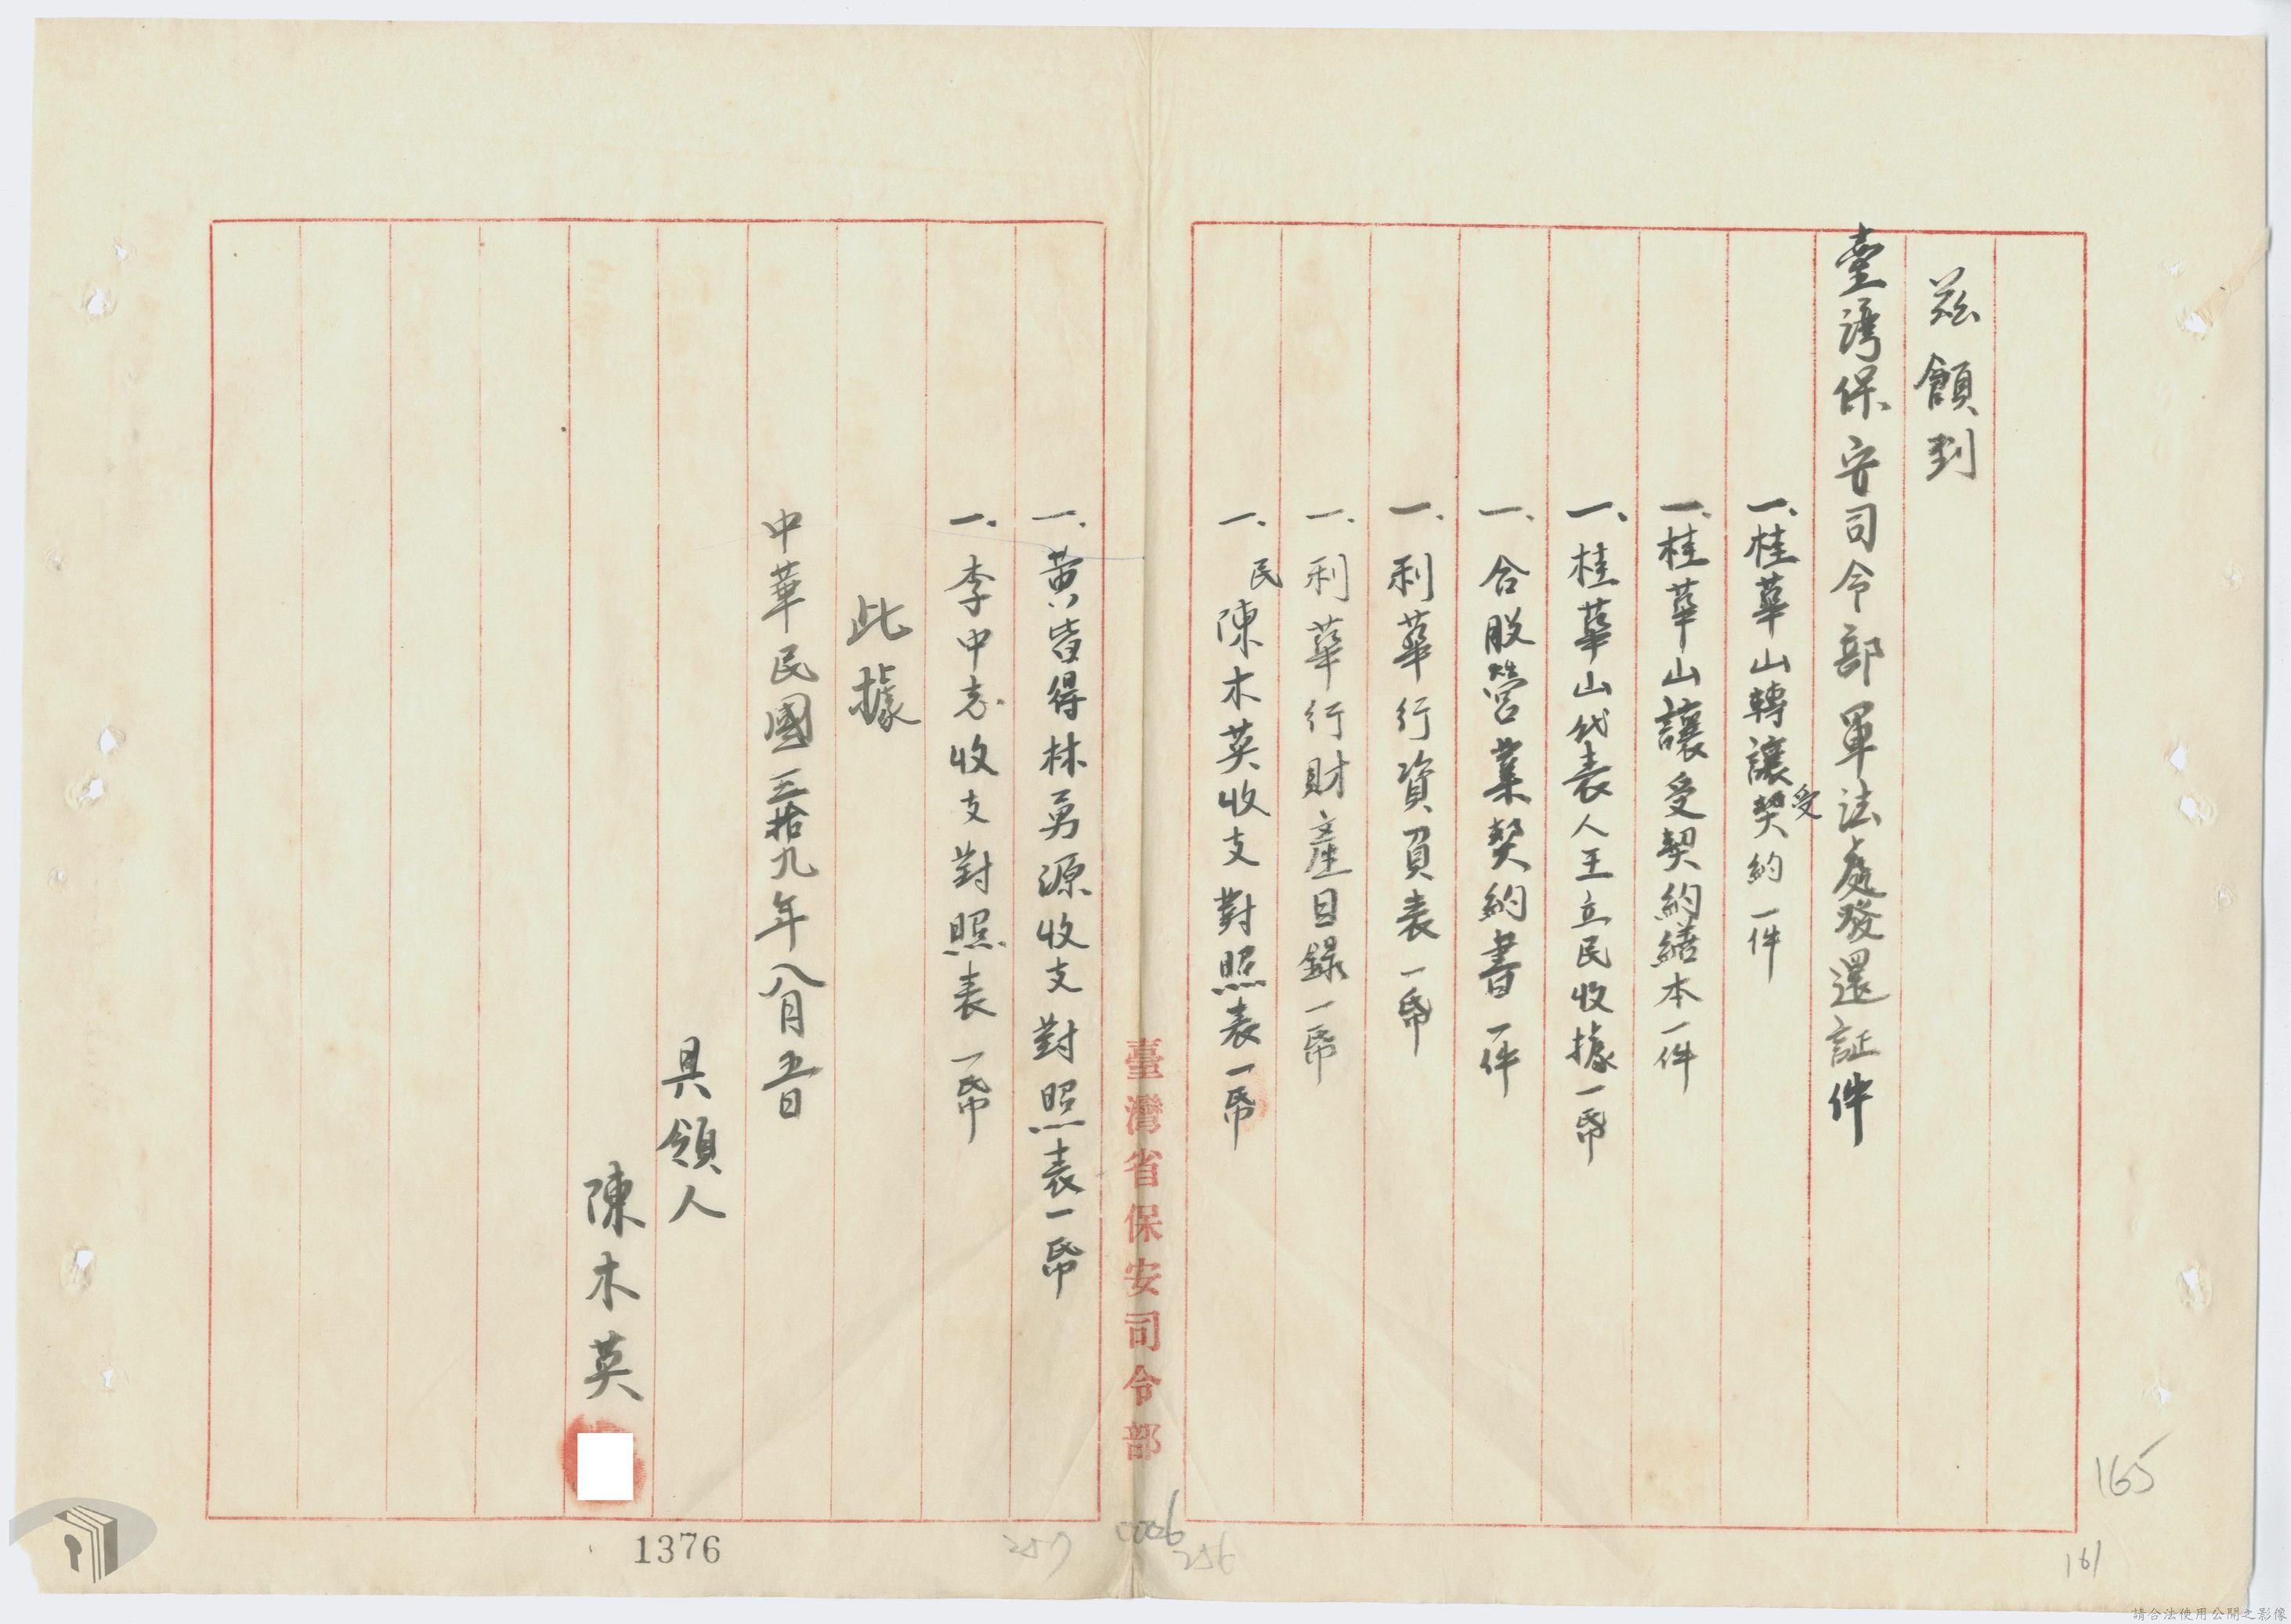 茲領到
臺灣保安司令部軍法處發還証件
一、桂華山轉讓受契約一件
一、桂華山讓受契約繕本一件
一、桂華山代表人王立民收據一帋
一、合股營業契約書一件
一、利華行資負表一帋
一、利華行財產目錄一帋
一、民陳木英收支對照表一帋
一、黃皆得林勇源收支對照表一帋
一、李中志收支對照表一帋
此據
中華民國三拾九年八月五日
具領人
陳木英
臺灣省保安司令部
165
161
256
257
1376
請合法使用公開之影像